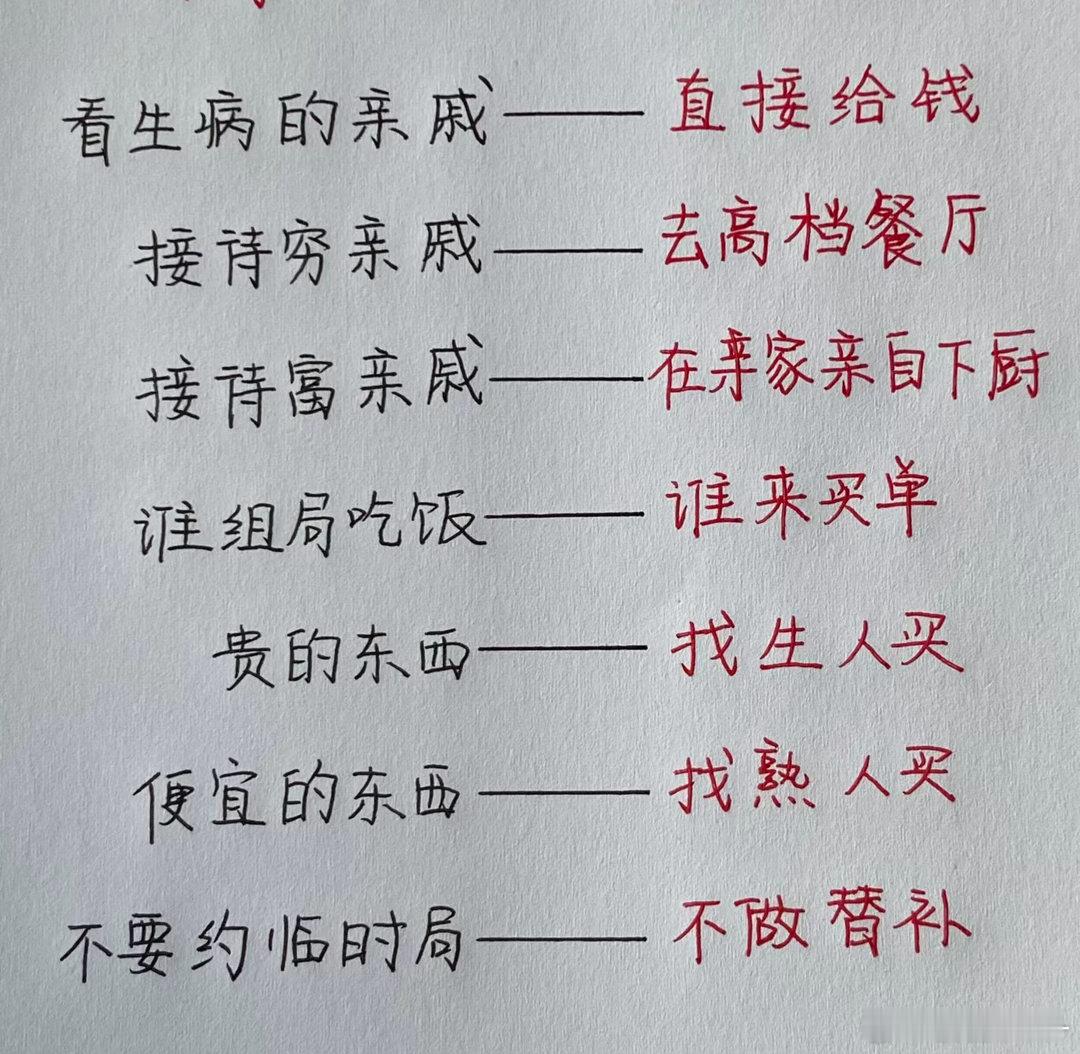 看生病的亲戚——直接给钱
接待穷亲戚——去高档餐厅
接待富亲戚——在家亲自下厨
谁组局吃饭——谁来买单
贵的东西——找生人买
便宜的东西——找熟人买
不要约临时局——不做替补